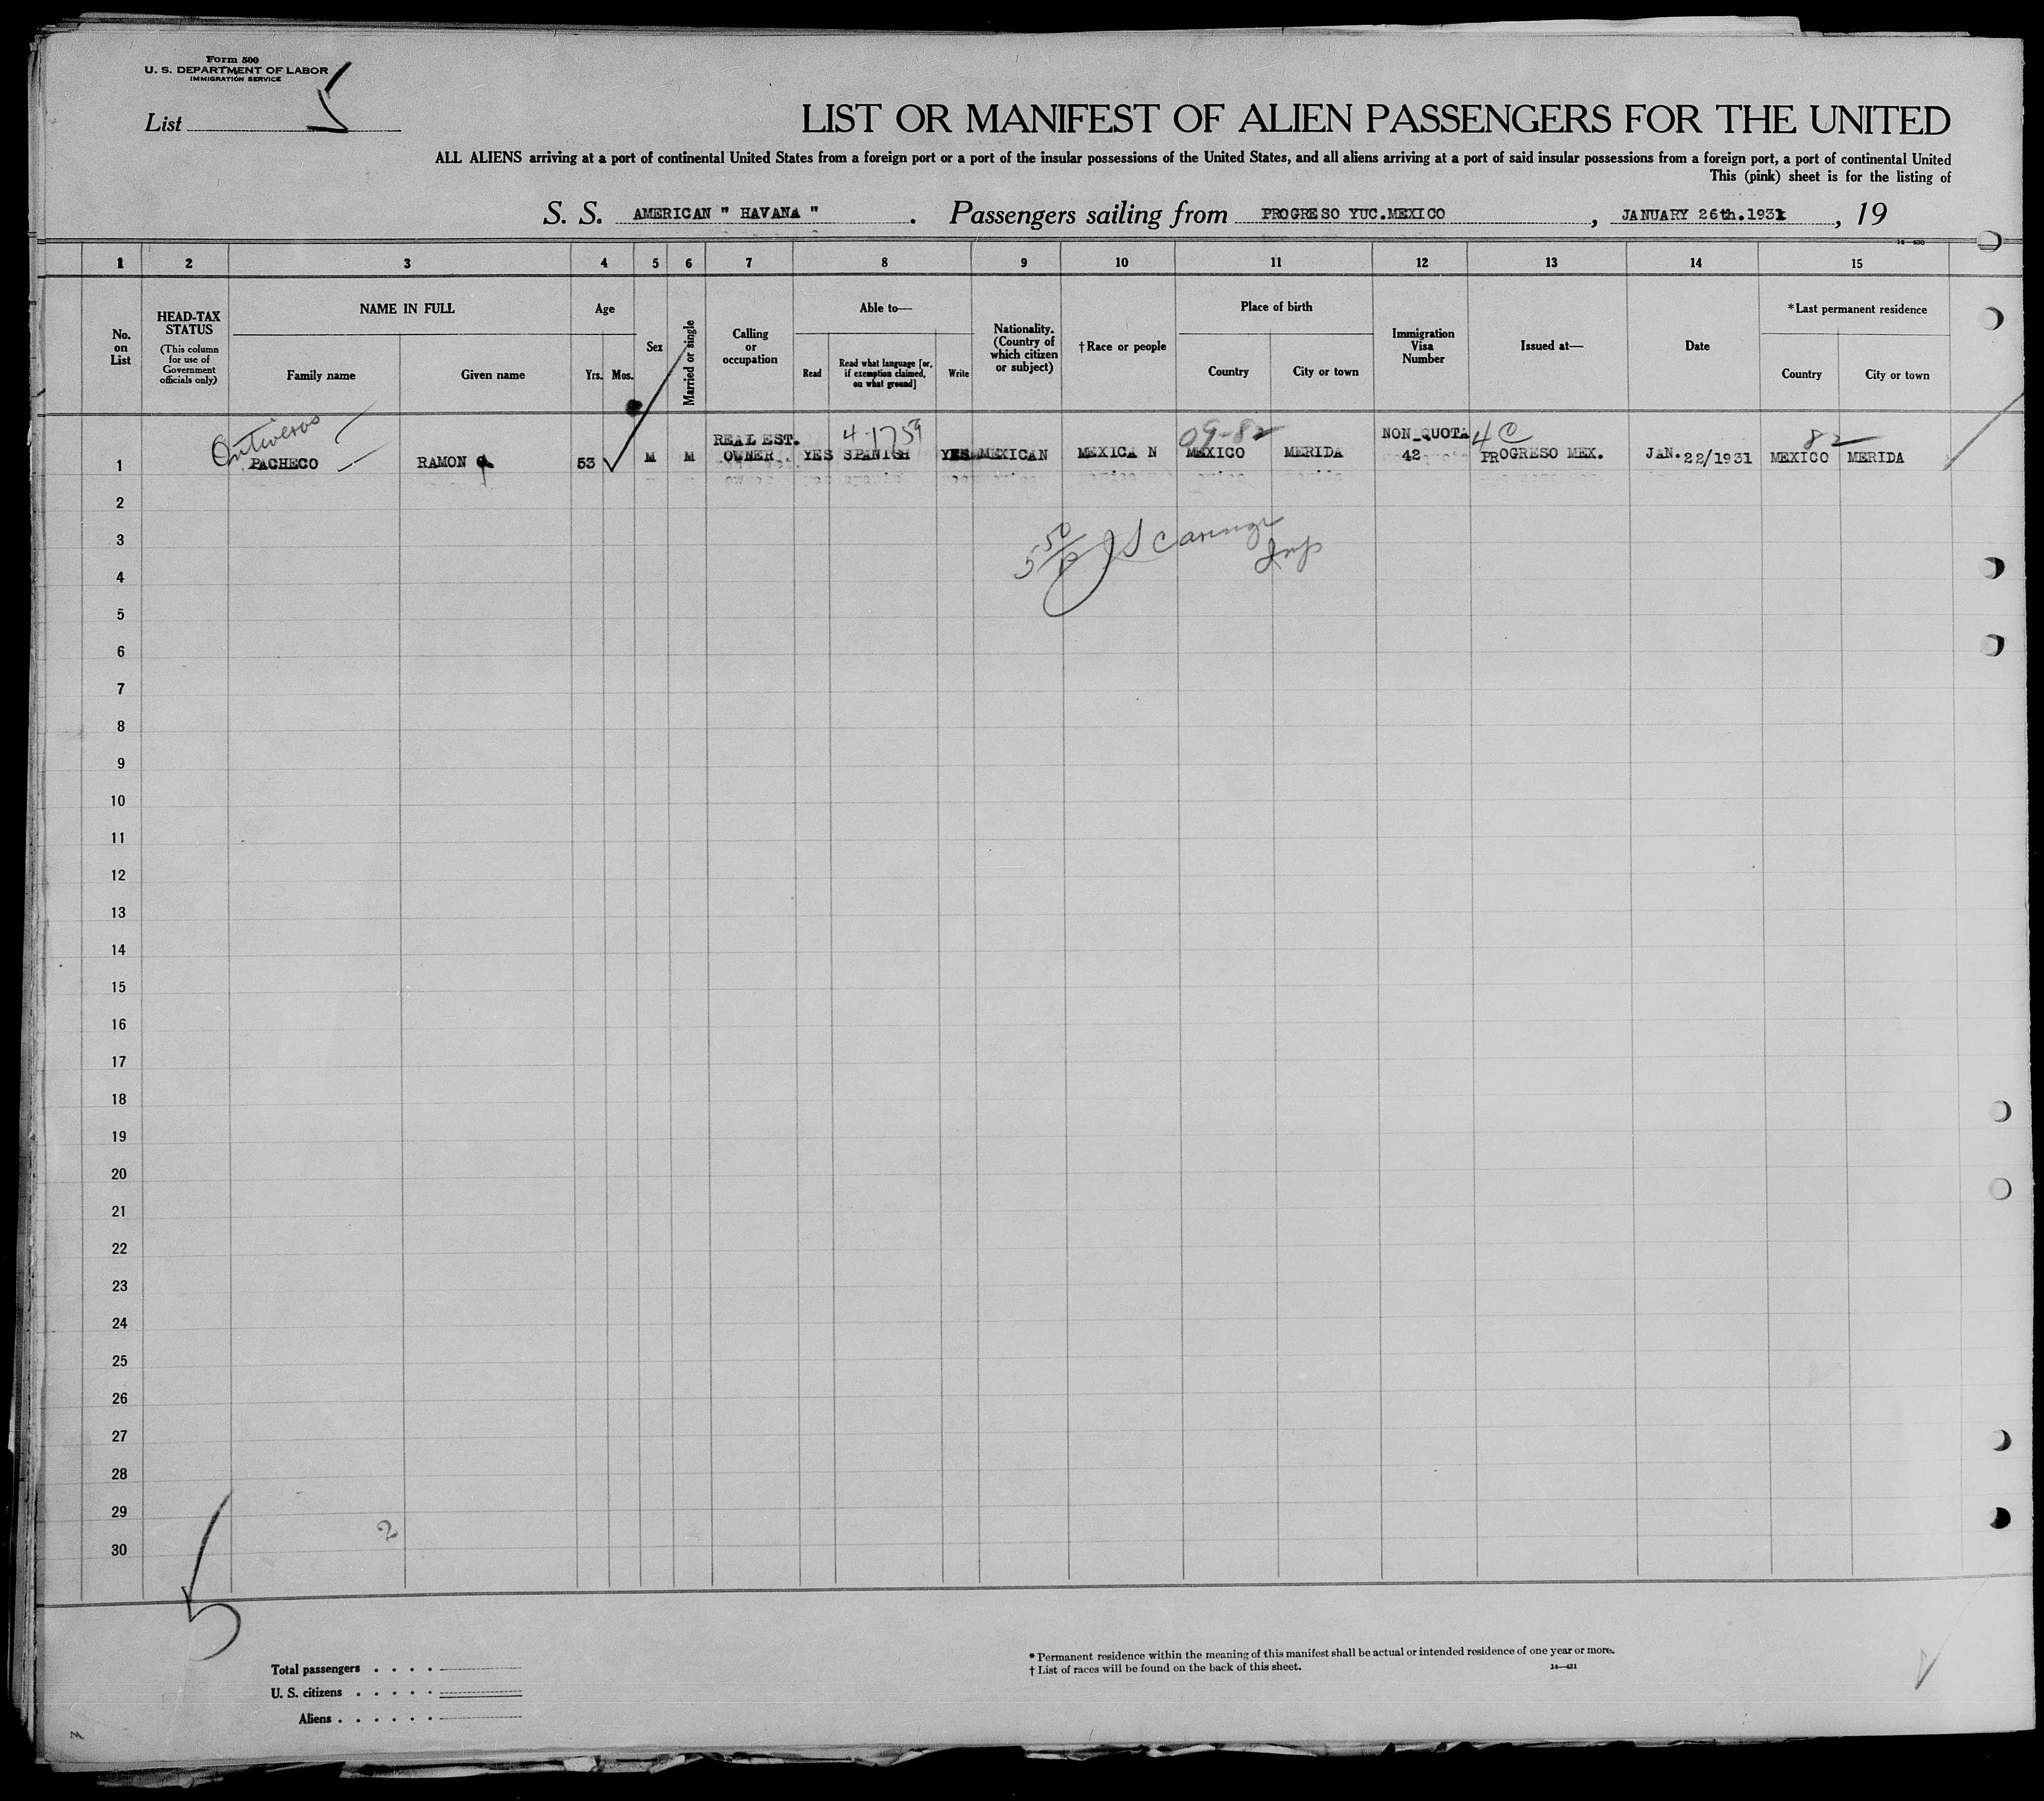 Form 500
U. S. DEPARTMENT OF LABOR
IMMIGRATION SERVICE
List 5
LIST OR MANIFEST OF ALIEN PASSENGERS FOR THE UNITED
ALL ALIENS arriving at a port of continental United States from a foreign port or a port of the insular possessions of the United States, and all aliens arriving at a port of said insular possessions from a foreign port, a port of continental United
This (pink) sheet is for the listing of
S. S. AMERICAN " HAVANA " . Passengers sailing from PROGRESO YUC.MEXICO , JANUARY 26th.1931 , 19
14—430
1 2 3 4 5 6 7 8 9 10 11 12 13 14 15
No. on List
HEAD-TAX STATUS
(This column for use of Government officials only)
NAME IN FULL
Family name
Given name
Age
Yrs. Mos.
Sex
Married or single
Calling or occupation
Able to—
Read
Read what language [or, if exemption claimed, on what ground]
Write
Nationality. (Country of which citizen or subject)
†Race or people
Place of birth
Country
City or town
Immigration Visa Number
Issued at—
Date
*Last permanent residence
Country
City or town
Ontiveros
REAL EST. 4-1759 09-82 NON_QUOTA 4C 82
1 PACHECO RAMON 53 M M OWNER. YES SPANISH YES MEXICAN MEXICA N MEXICO MERIDA 42 PROGRESO MEX. JAN.22/1931 MEXICO MERIDA
2
3
4
5
6
7
8
9
10
11
12
13
14
15
16
17
18
19
20
21
22
23
24
25
26
27
28
29
2
30
5
Total passengers . . . .
U. S. citizens . . . . .
Aliens . . . . . .
* Permanent residence within the meaning of this manifest shall be actual or intended residence of one year or more.
† List of races will be found on the back of this sheet.
14—431